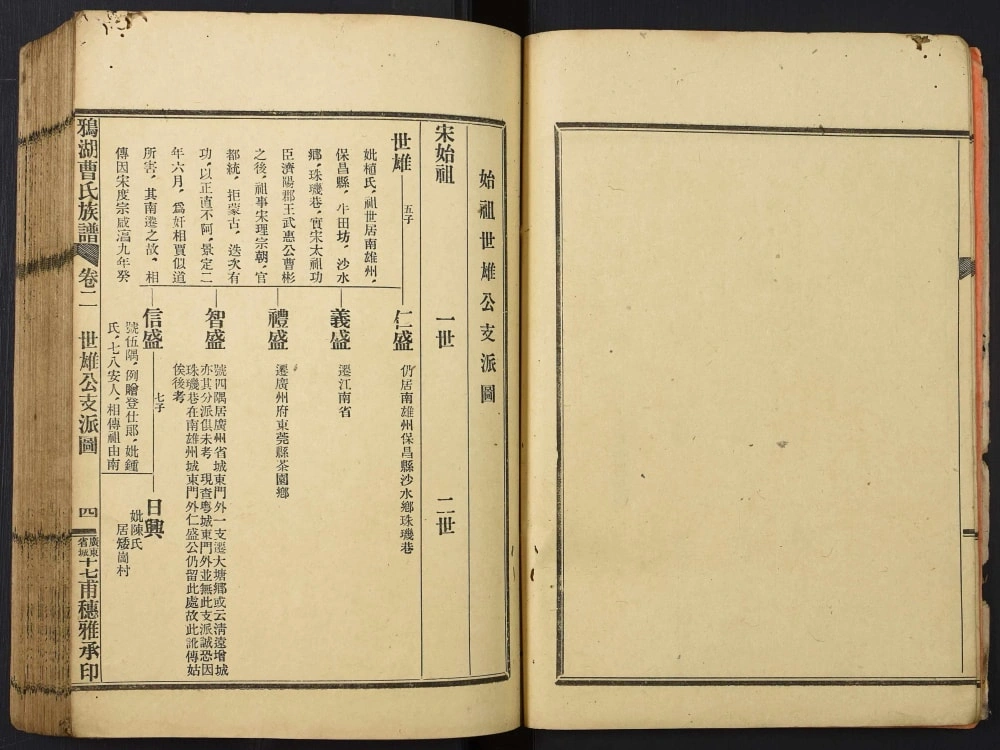 始祖世雄公支派圖
宋始祖
一世
二世
世雄
五子
妣植氏，祖世居南雄州，
保昌縣，牛田坊，沙水
鄉，珠璣巷，實宋太祖功
臣濟陽郡王武惠公曹彬
之後，祖事宋理宗朝，官
都統，拒蒙古，迭次有
功，以正直不阿，景定二
年六月，爲奸相賈似道
所害，其南遷之故，相
傳因宋度宗咸淳九年癸
仁盛
仍居南雄州保昌縣沙水鄉珠璣巷
義盛
遷江南省
禮盛
遷廣州府東莞縣茶園鄉
智盛
號四隅居廣州省城東門外一支遷大塘鄉或云清遠增城
亦其分派俱未考　現查粵城東門外並無此支派誠恐因
珠璣巷在南雄州城東門外仁盛公仍留此處故此訛傳姑
俟後考
信盛
七子
號伍隅，例贈登仕郎，妣鍾
氏，七八安人，相傳祖由南
日興
妣陳氏
居矮崗村
鴉湖曹氏族譜
卷二
世雄公支派圖
四
廣東省城十七甫穗雅承印